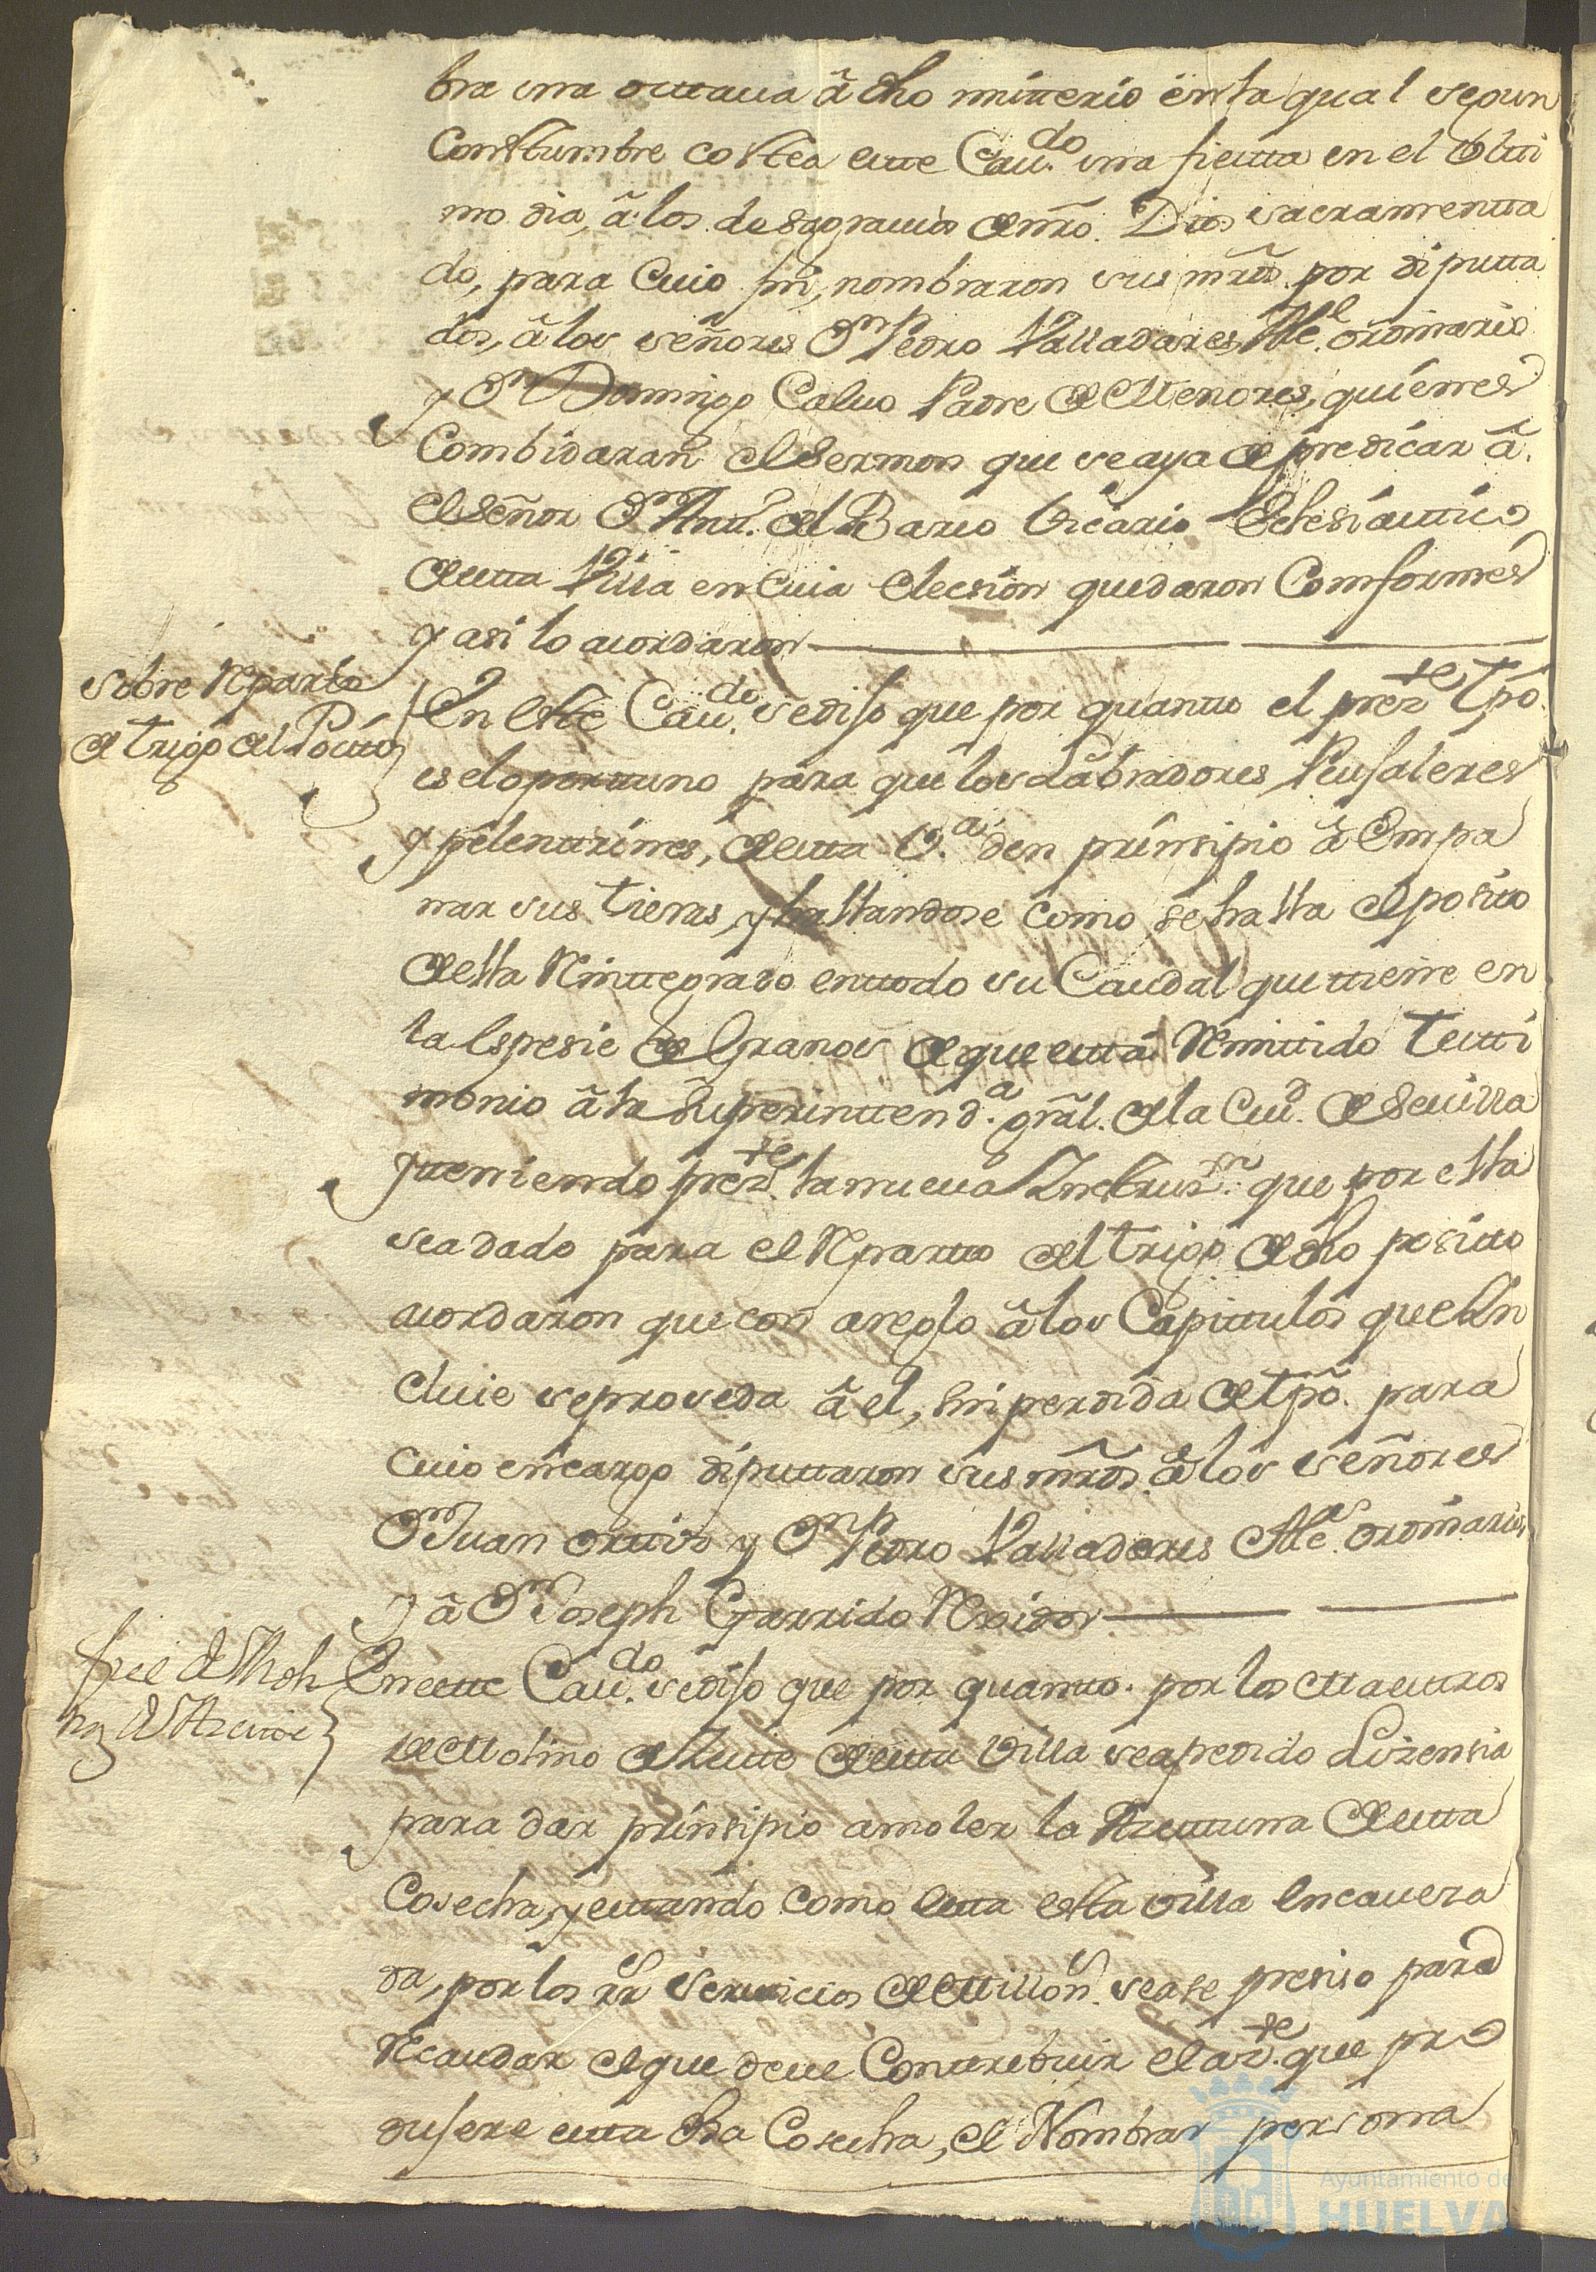 bra una octtaua â dho mistterio en la qual segun
Consttumbre costea este Cau.do una fiestta en el Ultti
mo dia, â los desagrauios de nro. Dios sacramentta
do, para Cuio fin, nombraron sus mrds. por diputta
dos, â los señores Dn Pedro Valladares Alc.l ordinario
y Dn Domingo Calvo Padre de Menores, quienes
Combidaran el Sermon que se aya de predicar â
el Señor Dn Antt.o del Barco Vicario Eclesiasttico
de estta Villa en Cuia elecsion quedaron Comformes
y asi lo acordaron
sobre Reparto
de trigo del Positto
En este Cau.do se dijo que por quantto el prez.te tpô.
es el oporttuno para que los Labradores Peujaleres
y pelenttrines, de estta V.a den prinsipio â Empa
nar sus tieras, y hallandose como se halla el posito
de ella Rinttegrado en ttodo su Caudal que ttiene en
la Espesie de Granos de que estta Remittido Testti
monio â la Superinttend.a grâl. de la Ciud. de Seuilla
y tteniendo prez.te la nueua Instruz.n que por ella
se a dado para el Repartto del trigo de dho positto
acordaron que con areglo â los Capittulos que In
cluie se proseda â el, sin perdida de tpô. para
cuio encargo diputtaron sus mrds. â los señores
Dn Juan Orttiz y Dn Pedro Valladares Alc.s ordinarios
y â Dn Joseph Garrido Rexidor
fiel de Moli
no de Azeitte
En estte Cau.do se dijo que por quantto por los Maesttros
de Molino de Azeitte de estta Villa se a pedido Lizensia
para dar prinsipio a moler la Azeittuna de estta
Cosecha, y esttando como estta esta villa Encaueza
da, por los rr.s Seruicios de Millon.s se ase presiso para
Recaudar el que deue Conttribuir el az.te que pro
dujere estta dha Cosecha, el Nombrar persona
Ayuntamiento de
HUELVA